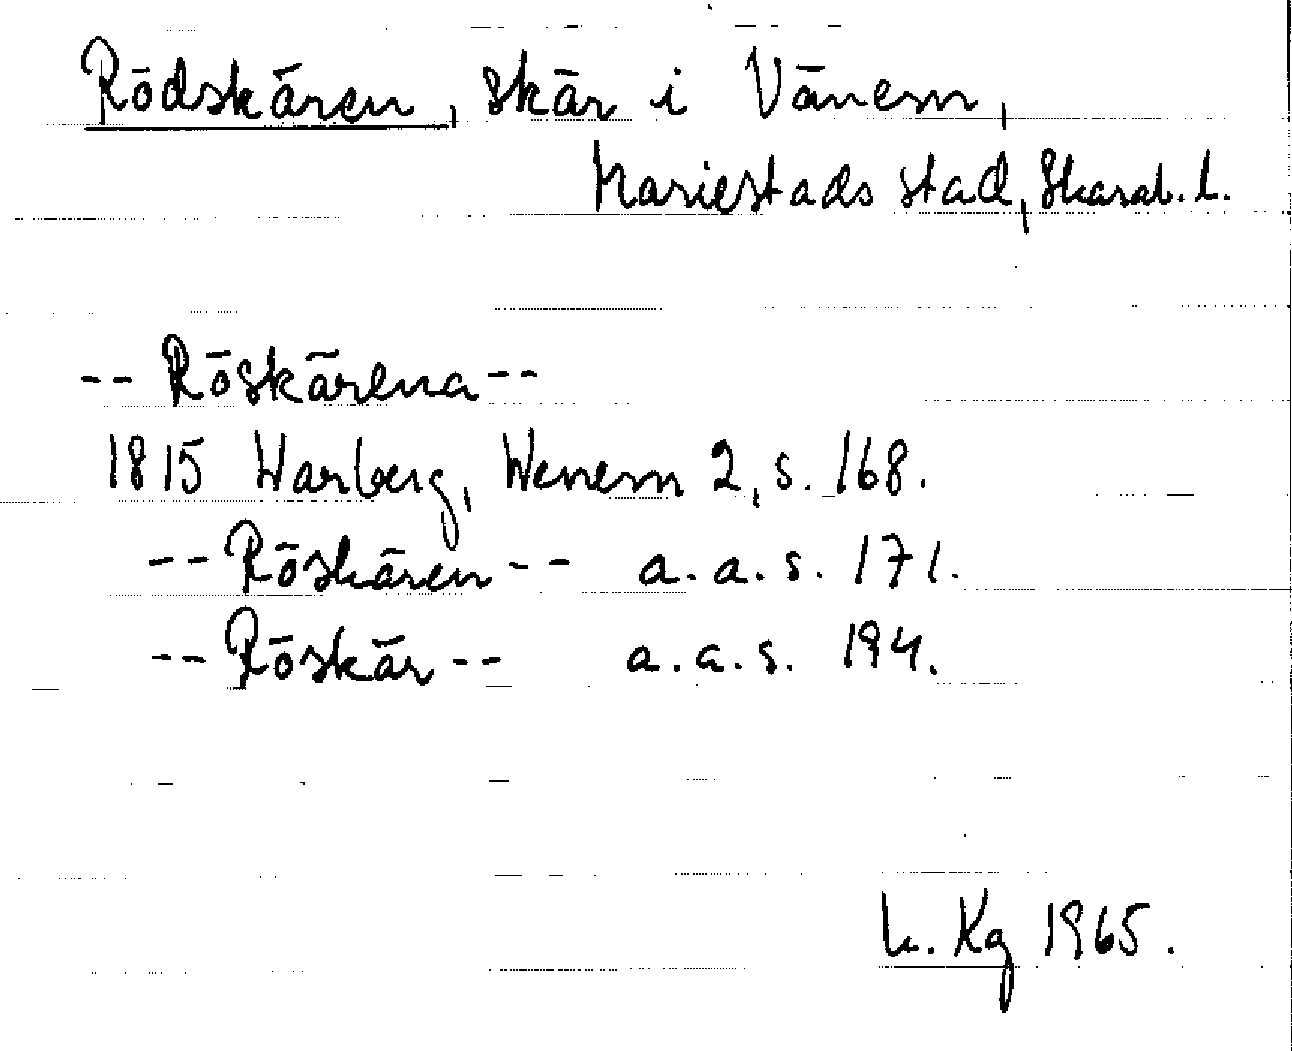 Rödskären, skär i Vänern,
Mariestads stad, Skarab. l.
-- Röskärena --
1815 Warberg, Wenern 2, s. 168.
-- Röskären -- a. a. s. 171.
-- Röskär -- a. a. s. 194.
Kg 1965.